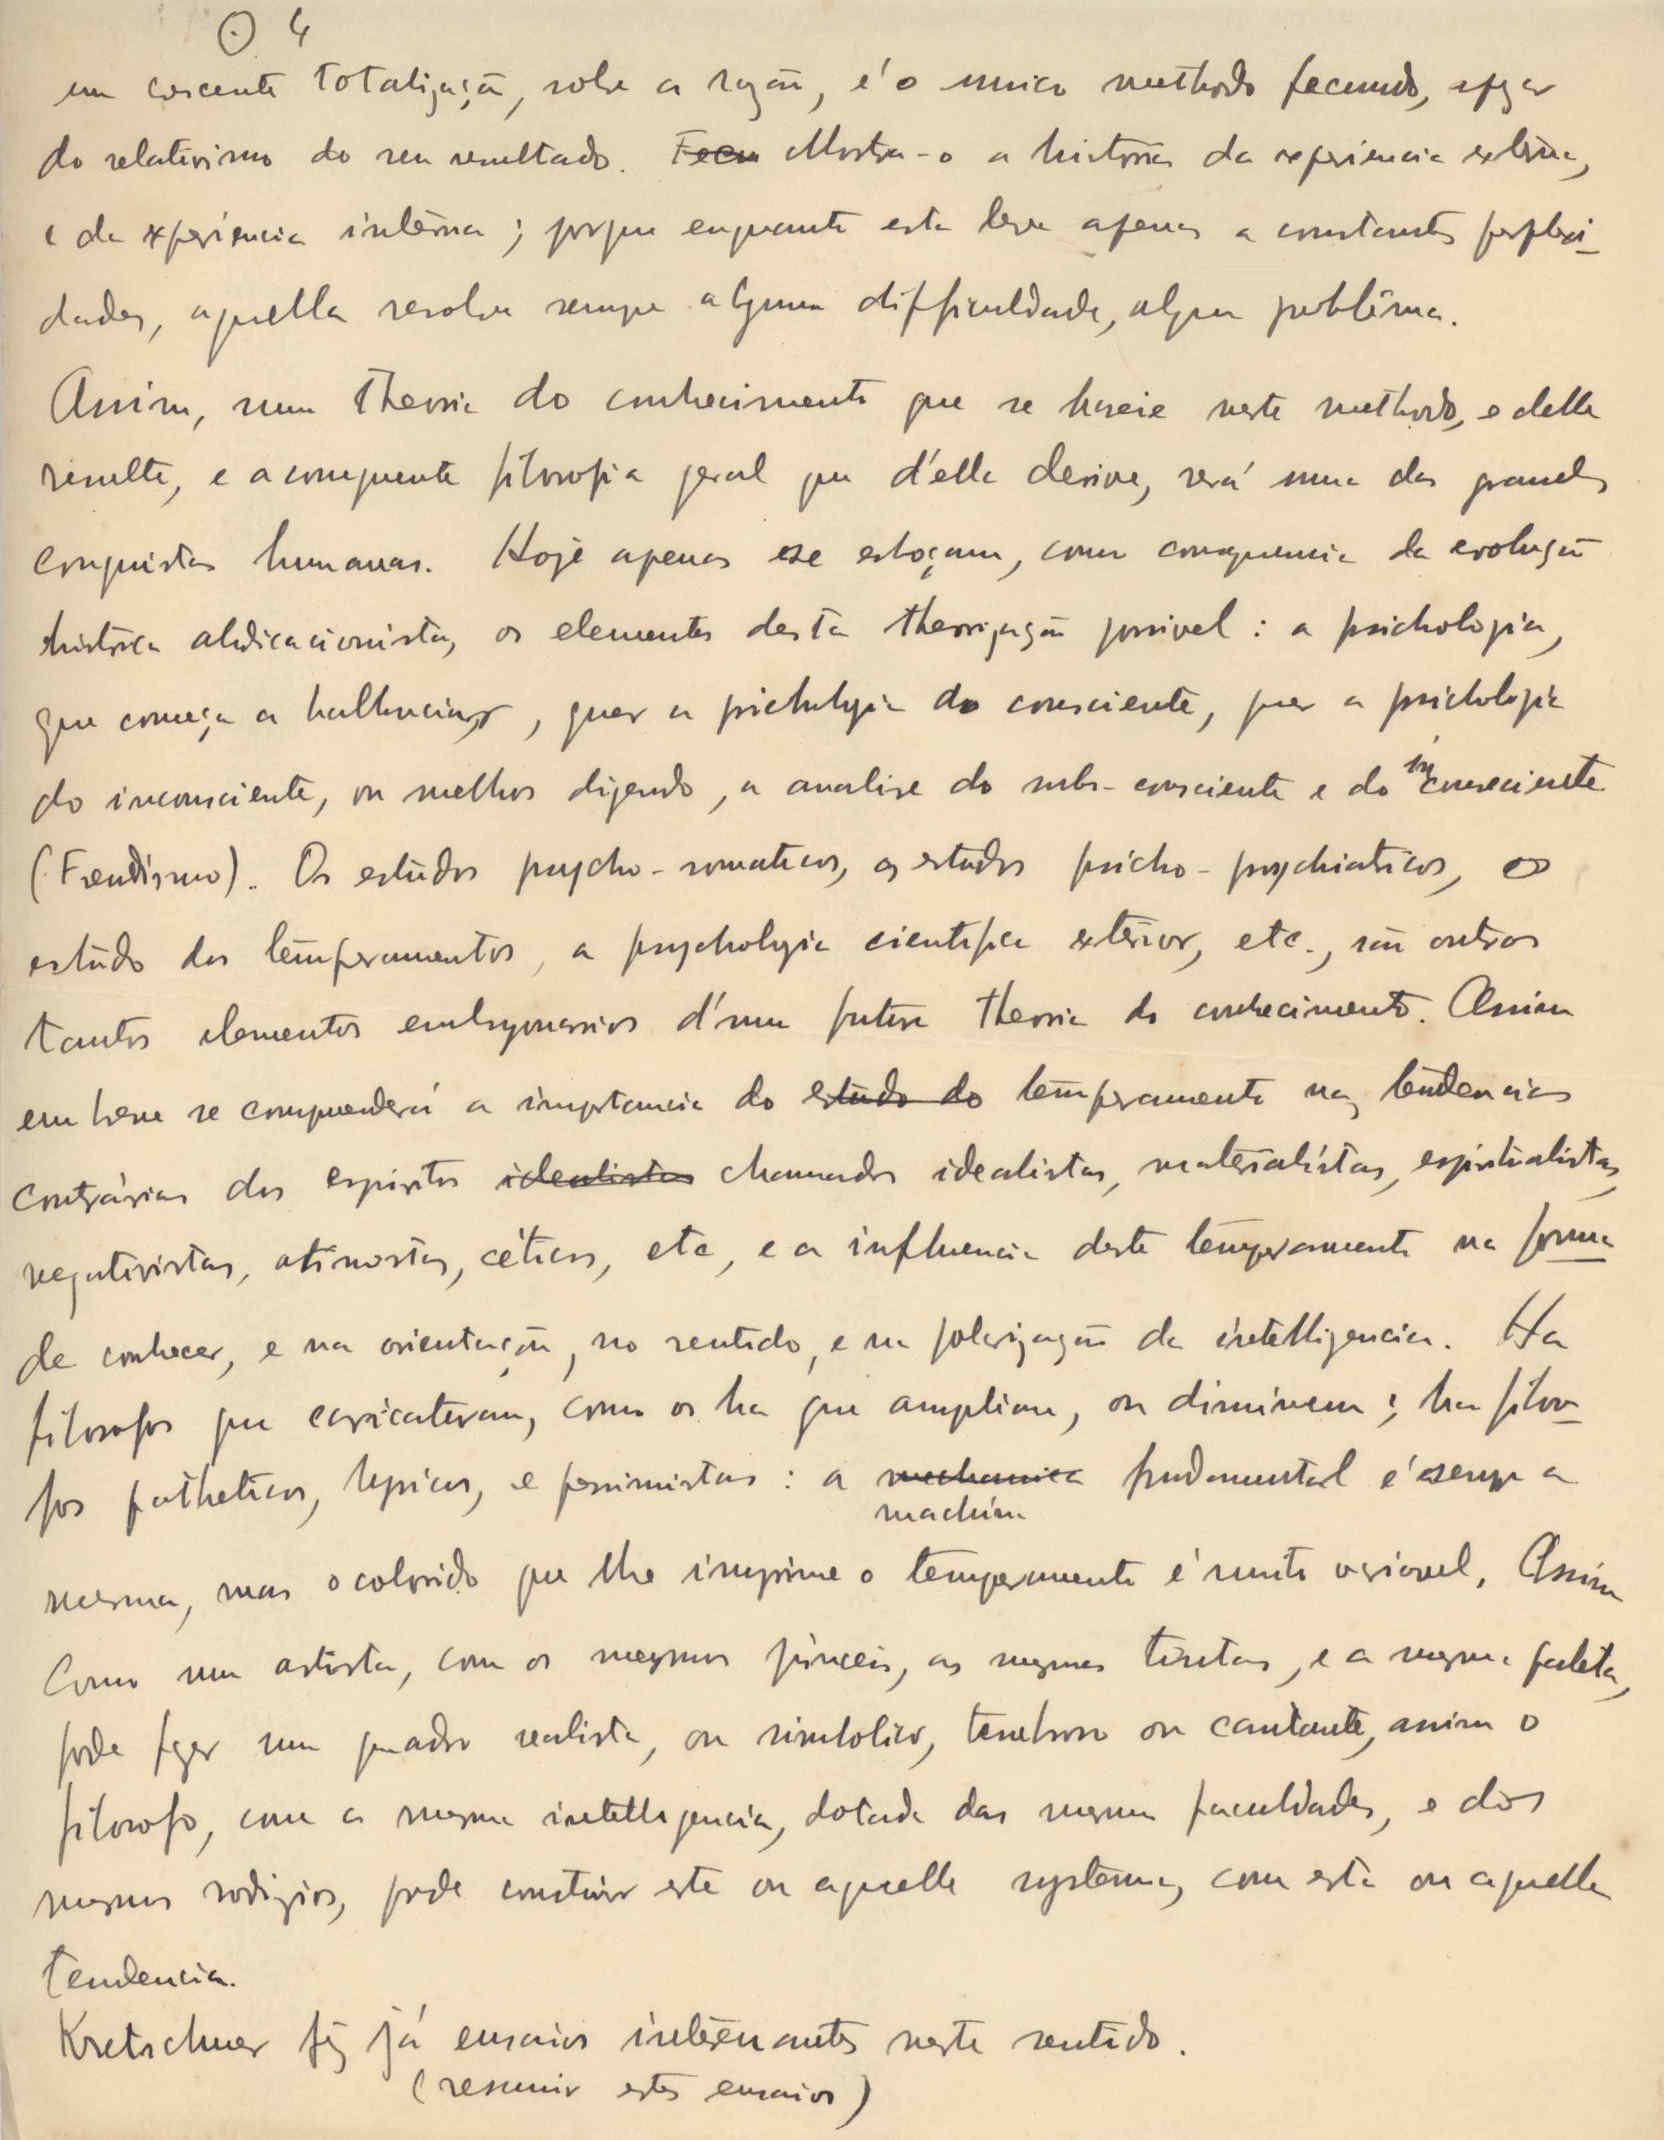 ⊙ 4
em crescente totalização, sobre a razão, é o unico methodo fecundo, apezar
do relativismo do seu resultado. Fecu Mostra-o a historia da experiencia externa,
e da experiencia interna; porque enquanto esta leva apenas a constantes perplexi-
dades, aquella resolve sempre alguma difficuldade, algum problêma.
Assim, uma theoria do conhecimento que se baseie neste methodo, e delle
resulte, e a consequente filosofia geral que d'ella derive, será uma das grandes
conquistas humanas. Hoje apenas se esboçam, como consequencia da evolução
historica abdicacionista, os elementos desta theorização possivel: a psichologia,
que começa a balbuciar, quer a psichologia do consciente, quer a psichologia
do inconsciente, ou melhor dizendo, a analise do sub-consciente e do inconsciente
(Freudismo). Os estudos psycho-somaticos, os estudos psicho-psychiatricos, o
estudo dos temperamentos, a psychologia cientifica exterior, etc., são outros
tantos elementos embryonarios d'uma futura theoria do conhecimento. Assim
em breve se comprenderá a importancia do estudo do temperamento nas tendencias
contrárias dos espiritos idealistas chamados idealistas, materialistas, espiritualistas,
negativistas, céticos, etc, e a influencia deste temperamento na forma
de conhecer, e na orientação, no sentido, e na polarização da intelligencia. Ha
filosofos que caricaturam, como os ha que ampliam, ou diminuem; ha filoso-
fos patheticos, lyricos, e pessimistas: a mechanica fundamental é sempre a
machina
mesma, mas o colorido que lhe imprime o temperamento é muito variavel. Assim
como um artista, com os mesmos pinceis, as mesmas tintas, e a mesma paleta,
pode fazer um quadro realista, ou simbolico, tenebroso ou cantante, assim o
filosofo, com a mesma intelligencia, dotada das mesmas faculdades, e dos
mesmos rodizios, pode construir este ou aquelle systema, com esta ou aquella
tendencia.
Kretschmer fez já ensaios interessantes neste sentido.
(resumir estes ensaios)